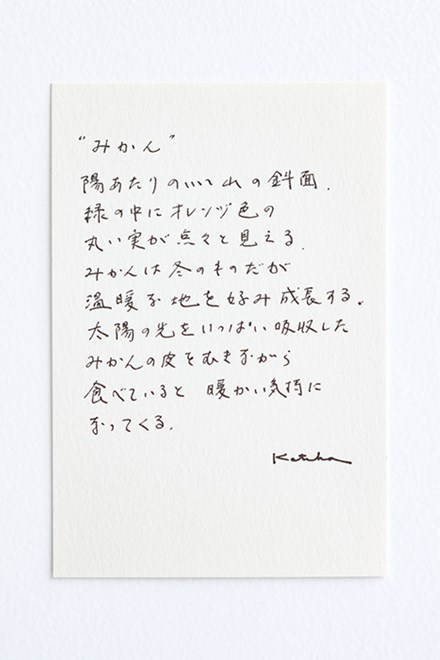 "みかん"
陽あたりのいい山の斜面.
緑の中にオレンヂ色の
丸い実が点々と見える.
みかんは冬のものだが
温暖な地を好み成長する。
太陽の光をいっぱい吸収した
みかんの皮をむきながら
食べていると 暖かい気持に
なってくる.